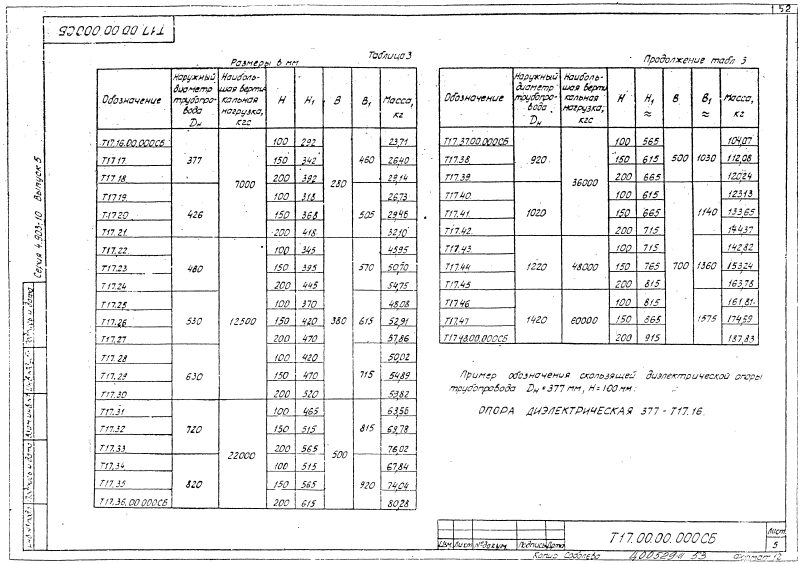 52
Т17.00.00.000СБ
Серия 4.903-10 Выпуск 5
Таблица 3
Размеры в мм
Обозначение | Наружный диаметр трубопровода Dн | Наибольшая вертикальная нагрузка, кгс | H | H₁ | B | B₁ | Масса, кг
Т17.16.00.000СБ | 377 | 7000 | 100 | 292 | 280 | 460 | 23,71
Т17.17 | 150 | 342 | 26,40
Т17.18 | 200 | 392 | 29,14
Т17.19 | 426 | 100 | 318 | 505 | 26,73
Т17.20 | 150 | 368 | 29,46
Т17.21 | 200 | 418 | 32,10
Т17.22 | 480 | 12500 | 100 | 345 | 380 | 570 | 45,95
Т17.23 | 150 | 395 | 50,70
Т17.24 | 200 | 445 | 54,75
Т17.25 | 530 | 100 | 370 | 615 | 48,08
Т17.26 | 150 | 420 | 52,91
Т17.27 | 200 | 470 | 57,86
Т17.28 | 630 | 100 | 420 | 715 | 50,02
Т17.29 | 150 | 470 | 54,89
Т17.30 | 200 | 520 | 59,82
Т17.31 | 720 | 22000 | 100 | 465 | 500 | 815 | 63,56
Т17.32 | 150 | 515 | 69,78
Т17.33 | 200 | 565 | 76,02
Т17.34 | 820 | 100 | 515 | 920 | 67,84
Т17.35 | 150 | 565 | 74,04
Т17.36.00.000СБ | 200 | 615 | 80,28
Продолжение табл 3
Обозначение | Наружный диаметр трубопровода Dн | Наибольшая вертикальная нагрузка, кгс | H | H₁ ≈ | B | B₁ ≈ | Масса, кг
Т17.37.00.000СБ | 920 | 36000 | 100 | 565 | 500 | 1030 | 104,07
Т17.38. | 150 | 615 | 112,08
Т17.39. | 200 | 665 | 120,24
Т17.40. | 1020 | 100 | 615 | 700 | 1140 | 123,13
Т17.41. | 150 | 665 | 133,65
Т17.42. | 200 | 715 | 144,37
Т17.43. | 1220 | 48000 | 100 | 715 | 1360 | 142,82
Т17.44 | 150 | 765 | 153,24
Т17.45 | 200 | 815 | 163,78
Т17.46 | 1420 | 60000 | 100 | 815 | 1575 | 161,81
Т17.47 | 150 | 865 | 174,59
Т17.48.00.000СБ | 200 | 915 | 187,83
Пример обозначения скользящей диэлектрической опоры
трубопровода Dн = 377 мм, H = 100 мм:
ОПОРА ДИЭЛЕКТРИЧЕСКАЯ 377 - Т17.16.
Т17.00.00.000СБ
Лист
5
Изм. Лист № докум. Подпись Дата
Копир Соболева
Ц00529-11 53
Формат 12
Подпись и дата
Взам.инв.№
Подпись и дата